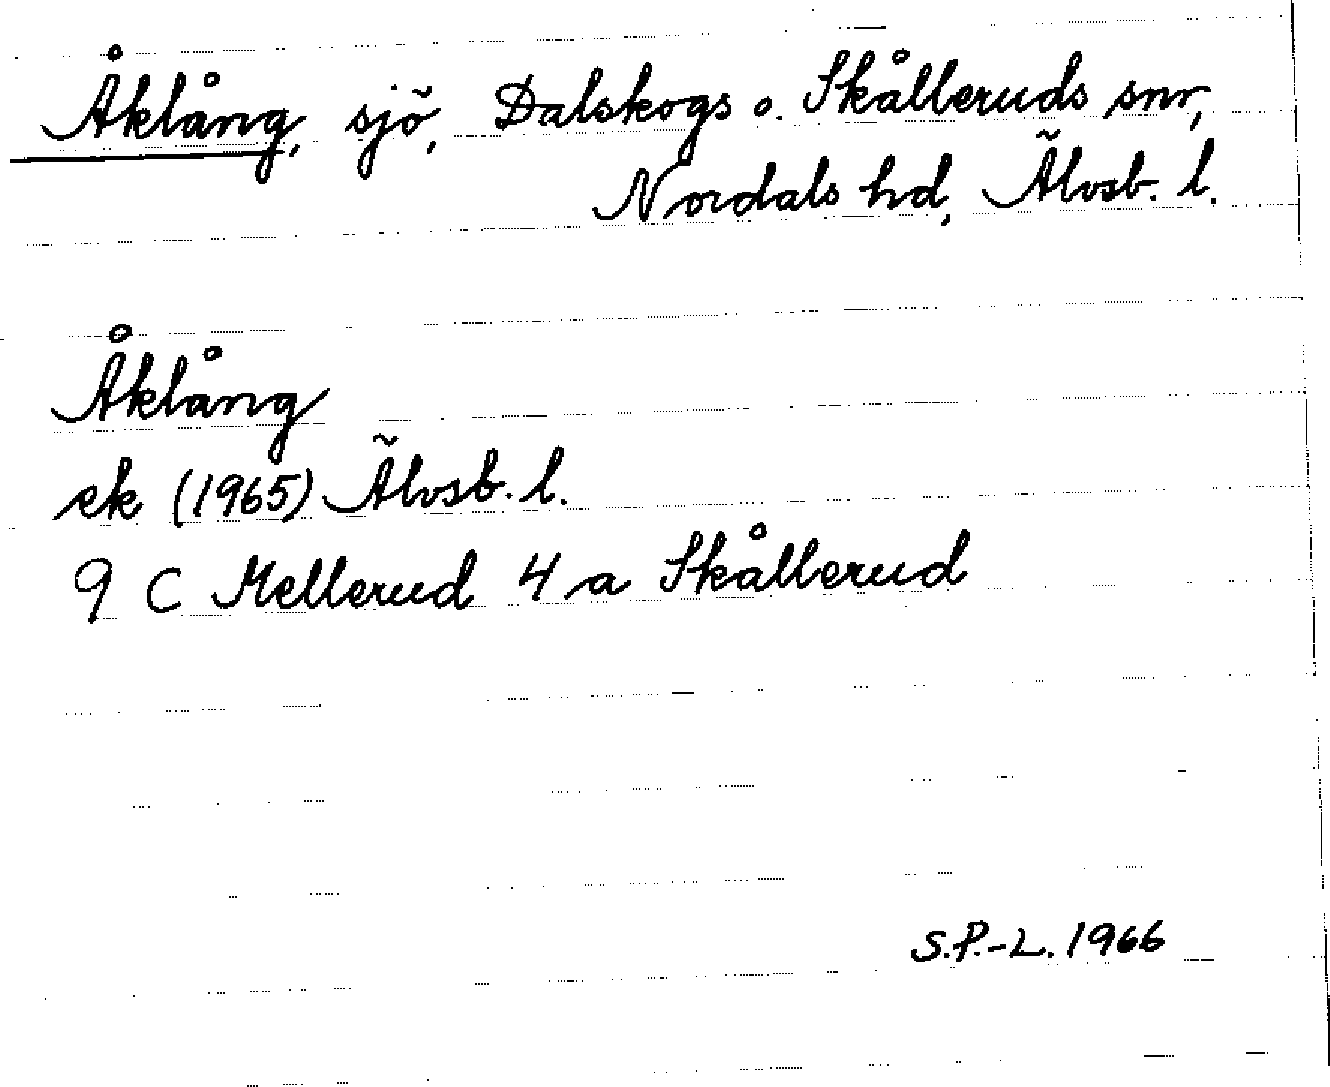 Åklång, sjö, Dalskogs o. Skålleruds snr,
Nordals hd, Älvsb. l.
Åklång
ek (1965) Älvsb. l.
9 C Mellerud 4 a Skållerud
S.P.-L. 1966